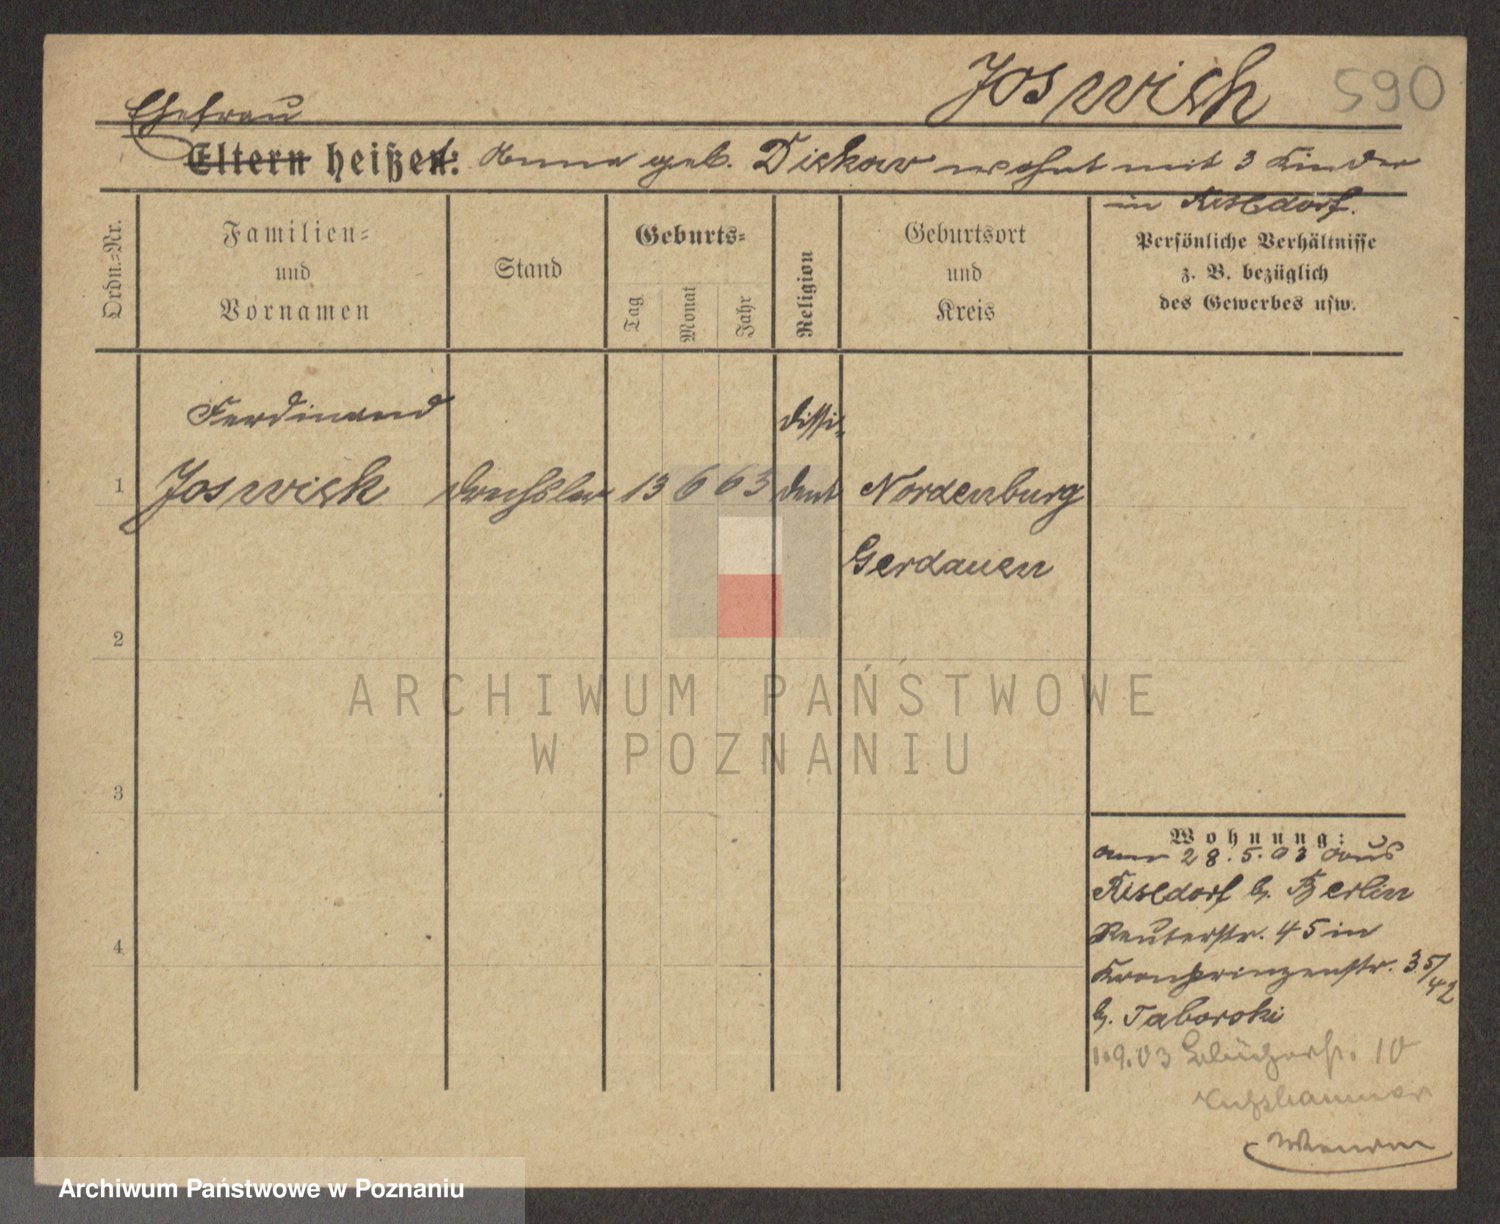 Joswich 590
Ehefrau
Eltern heißen: Anna geb. Diskow wohnt mit 3 Kinder
in Rixdorf.
Ordn.=Nr.
Familien=
und
Vornamen
Stand
Geburts=
Tag
Monat
Jahr
Religion
Geburtsort
und
Kreis
Persönliche Verhältnisse
z. B. bezüglich
des Gewerbes usw.
Ferdinand dissi-
1 Joswich Drechsler 13 6 63 dent Nordenburg
Gerdauen
2
3
4
Wohnung:
am 28.5.03 aus
Rixdorf b. Berlin
Reuterstr. 45 in
Kronprinzenstr. 35/42
b. Taborski
1.9.03 Blücherstr. 10
ARCHIWUM PAŃSTWOWE
W POZNANIU
Archiwum Państwowe w Poznaniu